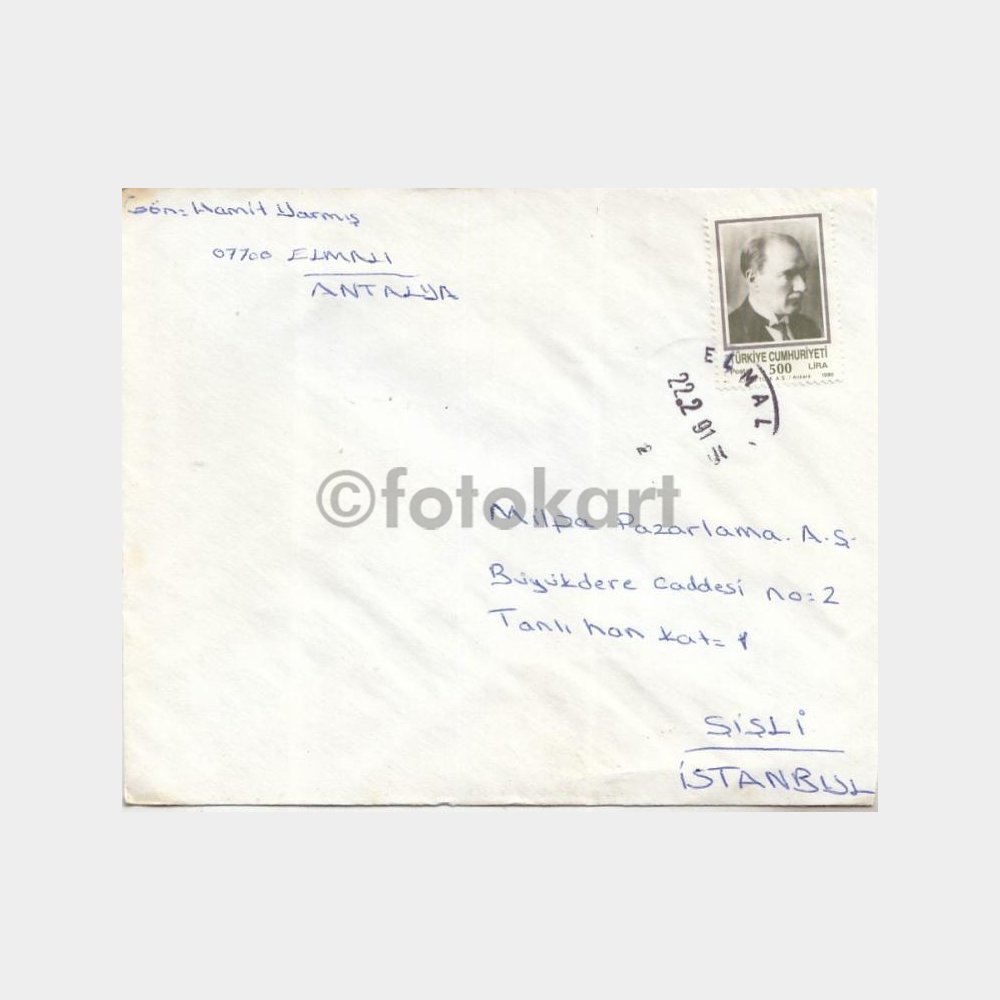 Gön: Hamit Yarmış
07700 ELMALI
ANTALYA
TÜRKİYE CUMHURİYETİ
500 LİRA
ELMALI
22.2.91
©fotokart
Milpa Pazarlama. A.Ş.
Büyükdere Caddesi no:2
Tanlı han kat= 1
ŞİŞLİ
İSTANBUL